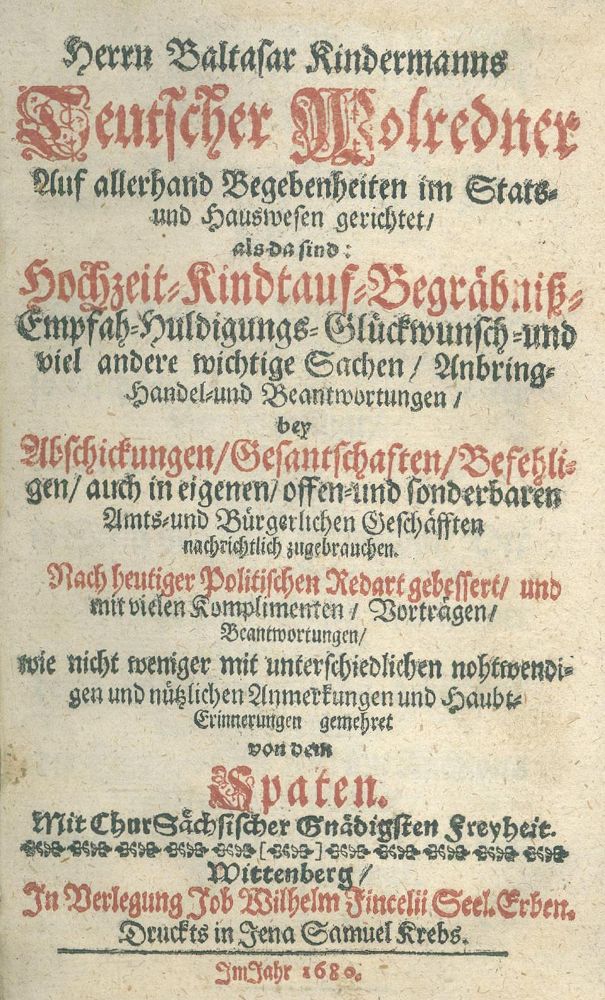 Herrn Baltasar Kindermanns
Teutscher Wolredner
Auf allerhand Begebenheiten im Stats-
und Hauswesen gerichtet/
als da sind:
Hochzeit-Kindtauf-Begräbniß-
Empfah-Huldigungs-Glückwunsch-und
viel andere wichtige Sachen/ Anbring-
Handel-und Beantwortungen/
bey
Abschickungen/Gesantschaften/Befehli-
gen/ auch in eigenen/ offen-und sonderbaren
Amts-und Bürgerlichen Geschäfften
nachrichtlich zugebrauchen.
Nach heutiger Politischen Redart gebessert/ und
mit vielen Komplimenten/ Vorträgen/
Beantwortungen/
wie nicht weniger mit unterschiedlichen nohtwendi-
gen und nützlichen Anmerkungen und Haubt-
Erinnerungen gemehret
von dem
Spaten.
Mit Chur Sächsischer Gnädigsten Freyheit.
Wittenberg/
In Verlegung Job Wilhelm Fincelii Seel. Erben.
Druckts in Jena Samuel Krebs.
Im Jahr 1680.